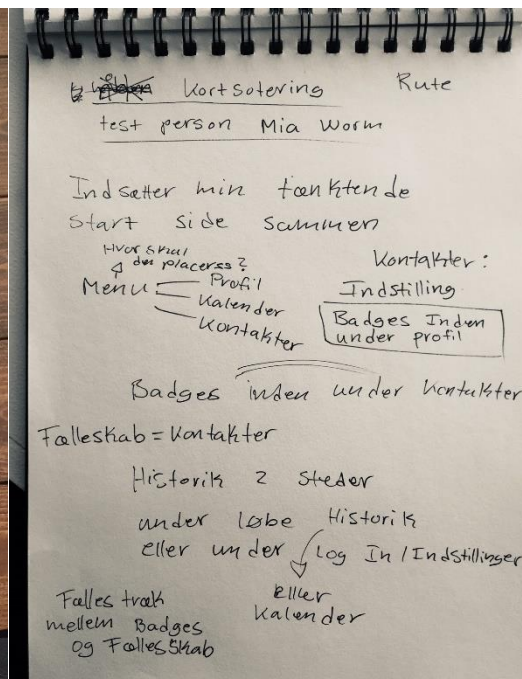 Kortsotering
Rute
test person Mia Worm
Indsætter min tænktende
start side sammen
Hvor skal
den placeres?
Menu
Profil
Kalender
Kontakter
Kontakter:
Indstilling
Badges Inden
under profil
Badges inden under Kontakter
Fælleskab = Kontakter
Historik 2 steder
under løbe Historik
eller under Log In / Indstillinger
eller
Kalender
Fælles træk
mellem Badges
og FællesSkab